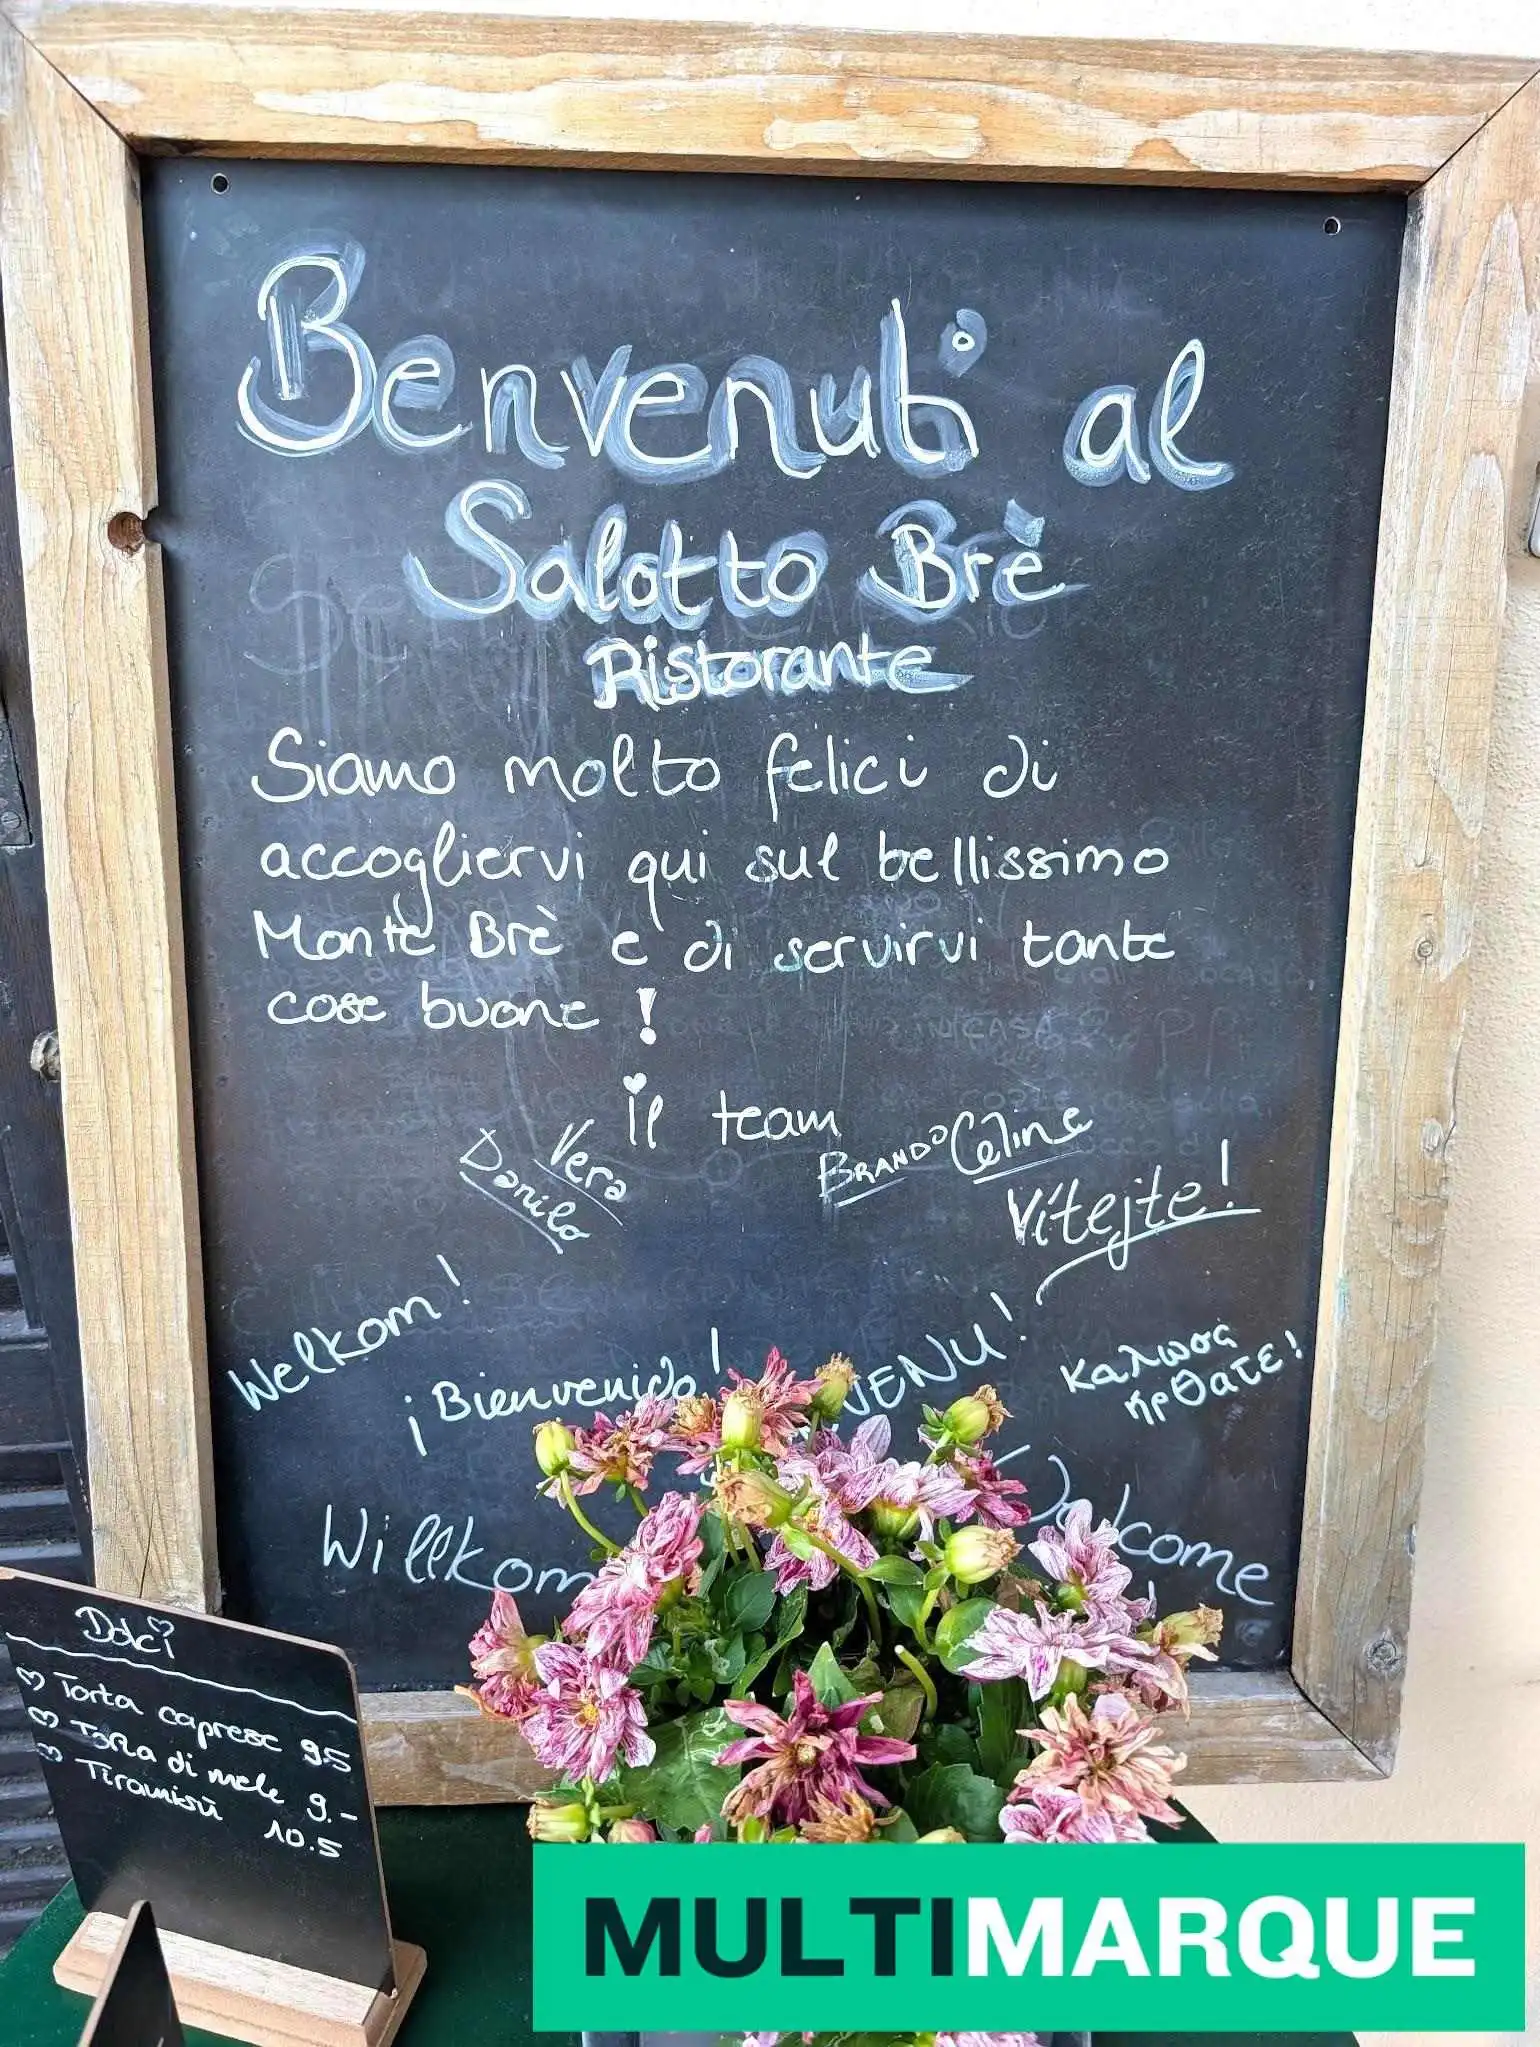 Benvenuti al
Salotto Brè
Ristorante
Siamo molto felici di
accogliervi qui sul bellissimo
Monte Brè e di servirvi tante
cose buone !
il team
Danilo
Vera
BRANDO
Celine
Vítejte!
Welkom!
¡Bienvenido!
VENU!
καλωσας
ήρθατε!
Willkom
Welcome
Dolci
Torta caprese 9.5
Torta di mele 9.-
Tiramisù 10.5
MULTIMARQUE